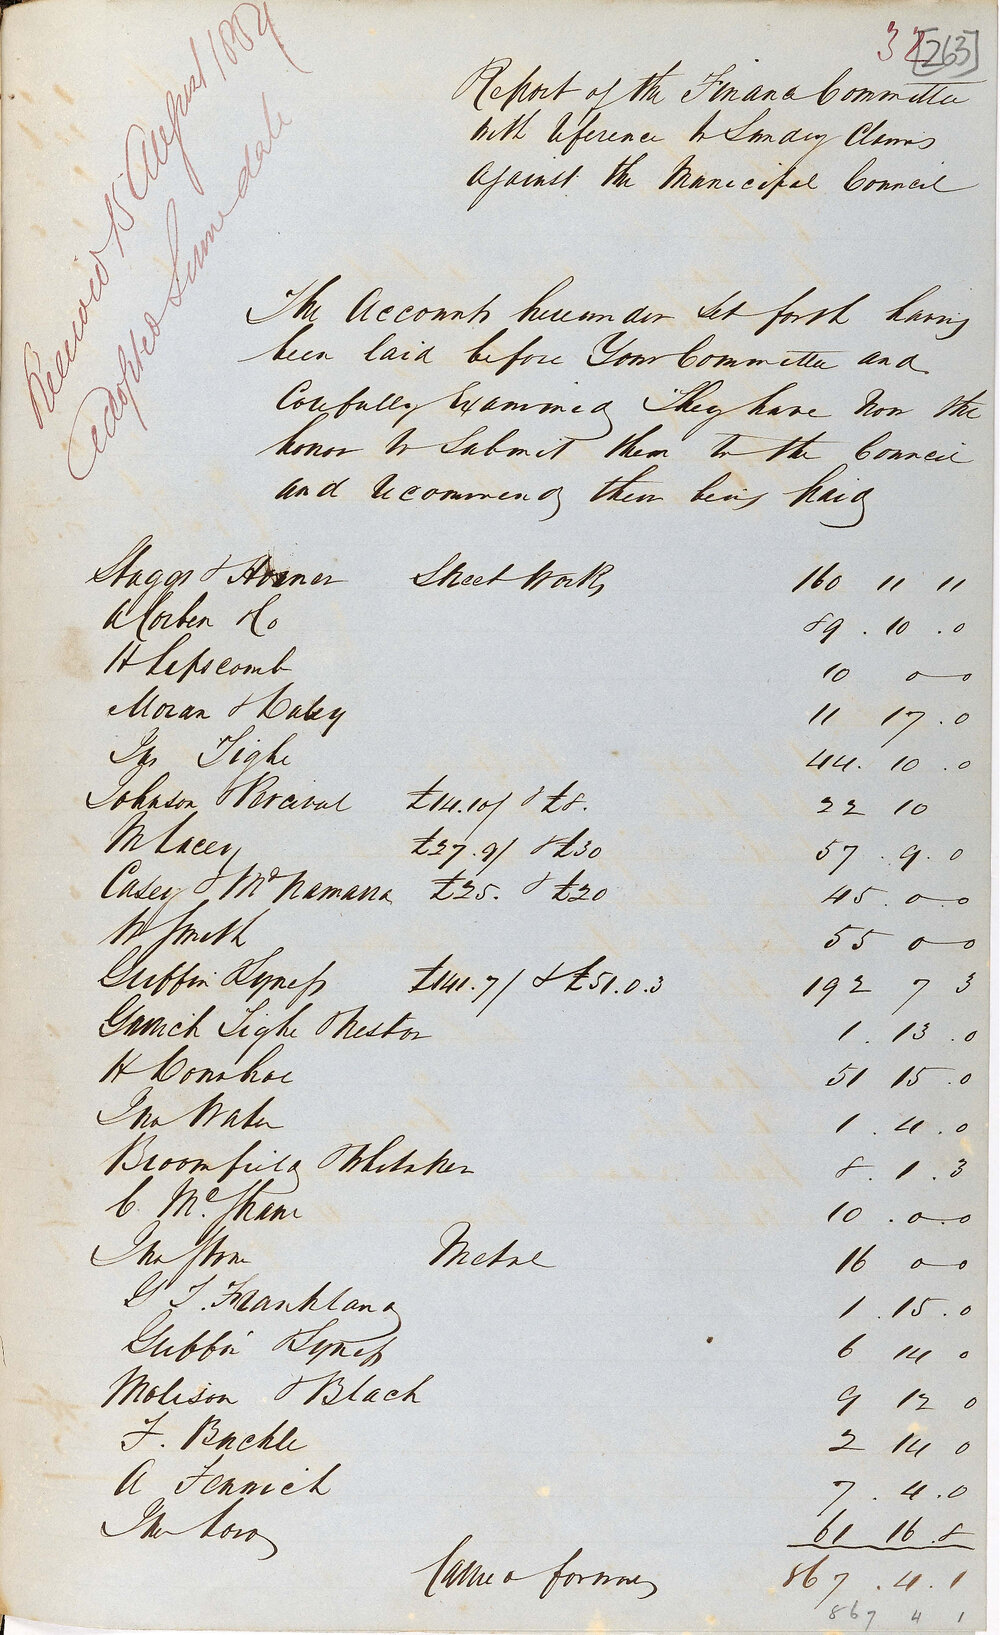 32 [263]
Received 15 August 1884
Adopted Same date
Report of the Finance Committee
with reference to Sundry Claims
against the Municipal Council
The Accounts hereunder set forth having
been laid before Your Committee and
Carefully Examined They have Now the
honor to Submit them to the Council
and recommend them being paid
Staggs & Horner Street Works 160 11 11
A Corben & Co 89 . 10 . 0
H Lipscomb 10 0 0
Moran & Haley 11 17 . 0
Jno Tighe 44 . 10 . 0
Johnson & Percival £14.10/ & £8. 22 10
M Lacey £27.9/ & £30 57 . 9 . 0
Casey & McNamara £25. & £20 45 . 0 0
W Smith 55 0 0
Griffin & Lyness £141.7/ & £51.0.3 192 7 3
Tighe & Nestor 1 . 13 . 0
H Donohoe 51 15 . 0
Jno Water 1 . 4 . 0
Broomfield & Whitaker 8 . 1 . 3
C. McShane 10 . 0 . 0
Jno Stone Metal 16 0 0
G T. Frankland 1 . 15 . 0
Griffin & Lyness 6 14 0
Molison & Black 9 12 0
F. Buckle 2 14 0
A Fennich 7 . 4 . 0
Jno 61 16 . 8
Carried forward 867 . 4 . 1
867 4 1